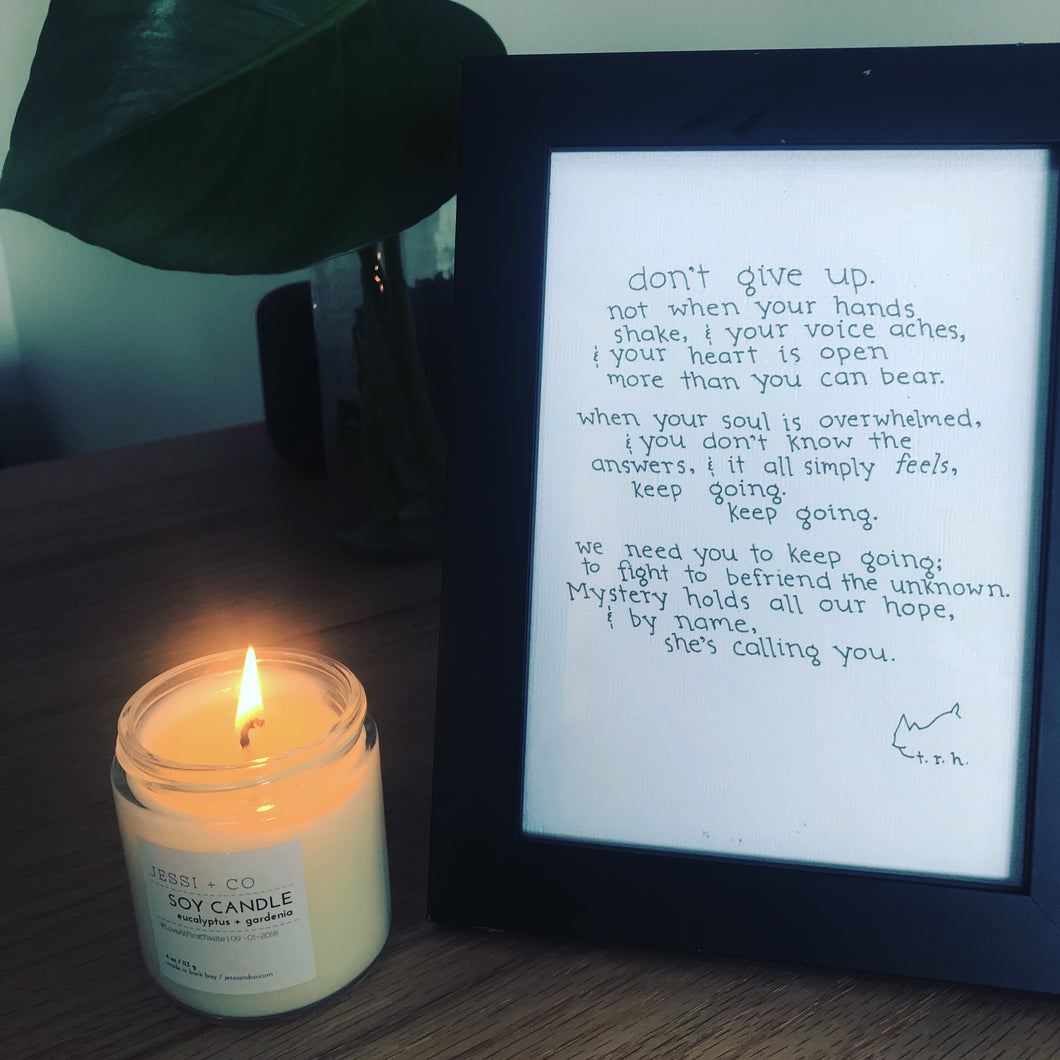 don't give up.
not when your hands
shake, & your voice aches,
& your heart is open
more than you can bear.
when your soul is overwhelmed,
& you don't know the
answers, & it all simply feels,
keep going.
keep going.
we need you to keep going;
to fight to befriend the unknown.
Mystery holds all our hope,
& by name,
she's calling you.
t. r. h.
JESSI + CO
SOY CANDLE
eucalyptus + gardenia
#LoveAtFirstTaaite | 09-01-2018
4 oz / 113 g
made in back bay / jessiandco.com